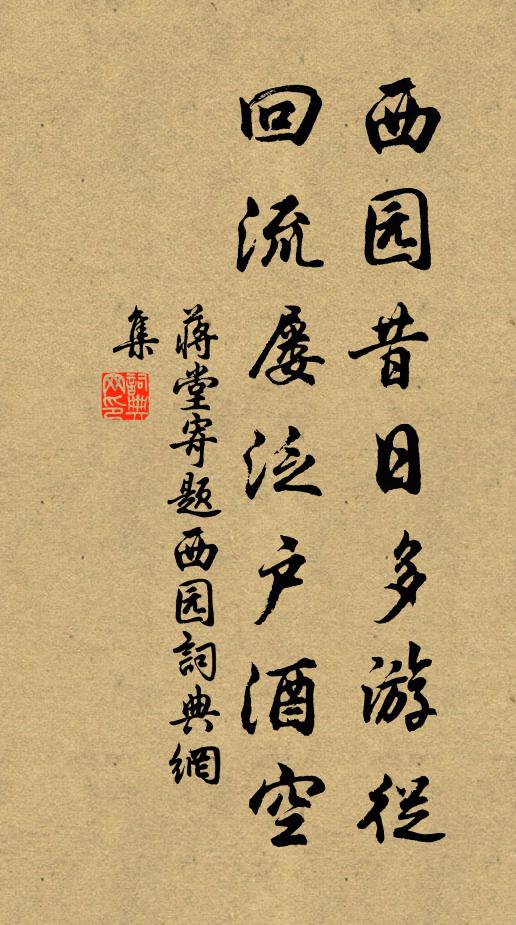 西园昔日多游从
回流屡泛户酒空
蒋堂寄题西园詞典網
集
詞典网印